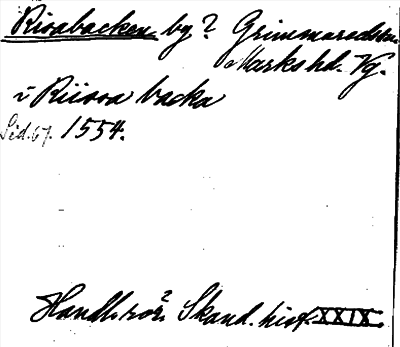 Risabacken by? Grimmareds sn.
Marks hd. Vg.
i Riissa backa
Sid. 67. 1554.
Handl. rör. Skand. hist. XXIX.